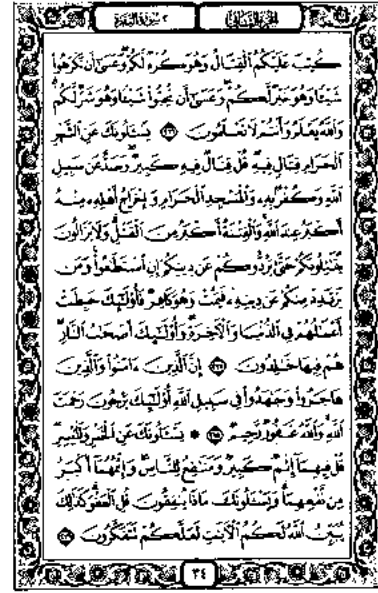 الجزء الثاني ٢ سورة البقرة
كُتِبَ عَلَيْكُمُ ٱلْقِتَالُ وَهُوَ كُرْهٌ لَّكُمْ وَعَسَىٰٓ أَن تَكْرَهُوا۟
شَيْـًٔا وَهُوَ خَيْرٌ لَّكُمْ وَعَسَىٰٓ أَن تُحِبُّوا۟ شَيْـًٔا وَهُوَ شَرٌّ لَّكُمْ
وَٱللَّهُ يَعْلَمُ وَأَنتُمْ لَا تَعْلَمُونَ ٢١٦ يَسْـَٔلُونَكَ عَنِ ٱلشَّهْرِ
ٱلْحَرَامِ قِتَالٍ فِيهِ قُلْ قِتَالٌ فِيهِ كَبِيرٌ وَصَدٌّ عَن سَبِيلِ
ٱللَّهِ وَكُفْرٌۢ بِهِۦ وَٱلْمَسْجِدِ ٱلْحَرَامِ وَإِخْرَاجُ أَهْلِهِۦ مِنْهُ
أَكْبَرُ عِندَ ٱللَّهِ وَٱلْفِتْنَةُ أَكْبَرُ مِنَ ٱلْقَتْلِ وَلَا يَزَالُونَ
يُقَـٰتِلُونَكُمْ حَتَّىٰ يَرُدُّوكُمْ عَن دِينِكُمْ إِنِ ٱسْتَطَـٰعُوا۟ وَمَن
يَرْتَدِدْ مِنكُمْ عَن دِينِهِۦ فَيَمُتْ وَهُوَ كَافِرٌ فَأُو۟لَـٰٓئِكَ حَبِطَتْ
أَعْمَـٰلُهُمْ فِى ٱلدُّنْيَا وَٱلْـَٔاخِرَةِ وَأُو۟لَـٰٓئِكَ أَصْحَـٰبُ ٱلنَّارِ
هُمْ فِيهَا خَـٰلِدُونَ ٢١٧ إِنَّ ٱلَّذِينَ ءَامَنُوا۟ وَٱلَّذِينَ
هَاجَرُوا۟ وَجَـٰهَدُوا۟ فِى سَبِيلِ ٱللَّهِ أُو۟لَـٰٓئِكَ يَرْجُونَ رَحْمَتَ
ٱللَّهِ وَٱللَّهُ غَفُورٌ رَّحِيمٌ ٢١٨ ۞ يَسْـَٔلُونَكَ عَنِ ٱلْخَمْرِ وَٱلْمَيْسِرِ
قُلْ فِيهِمَآ إِثْمٌ كَبِيرٌ وَمَنَـٰفِعُ لِلنَّاسِ وَإِثْمُهُمَآ أَكْبَرُ
مِن نَّفْعِهِمَا وَيَسْـَٔلُونَكَ مَاذَا يُنفِقُونَ قُلِ ٱلْعَفْوَ كَذَٰلِكَ
يُبَيِّنُ ٱللَّهُ لَكُمُ ٱلْـَٔايَـٰتِ لَعَلَّكُمْ تَتَفَكَّرُونَ ٢١٩
٣٤